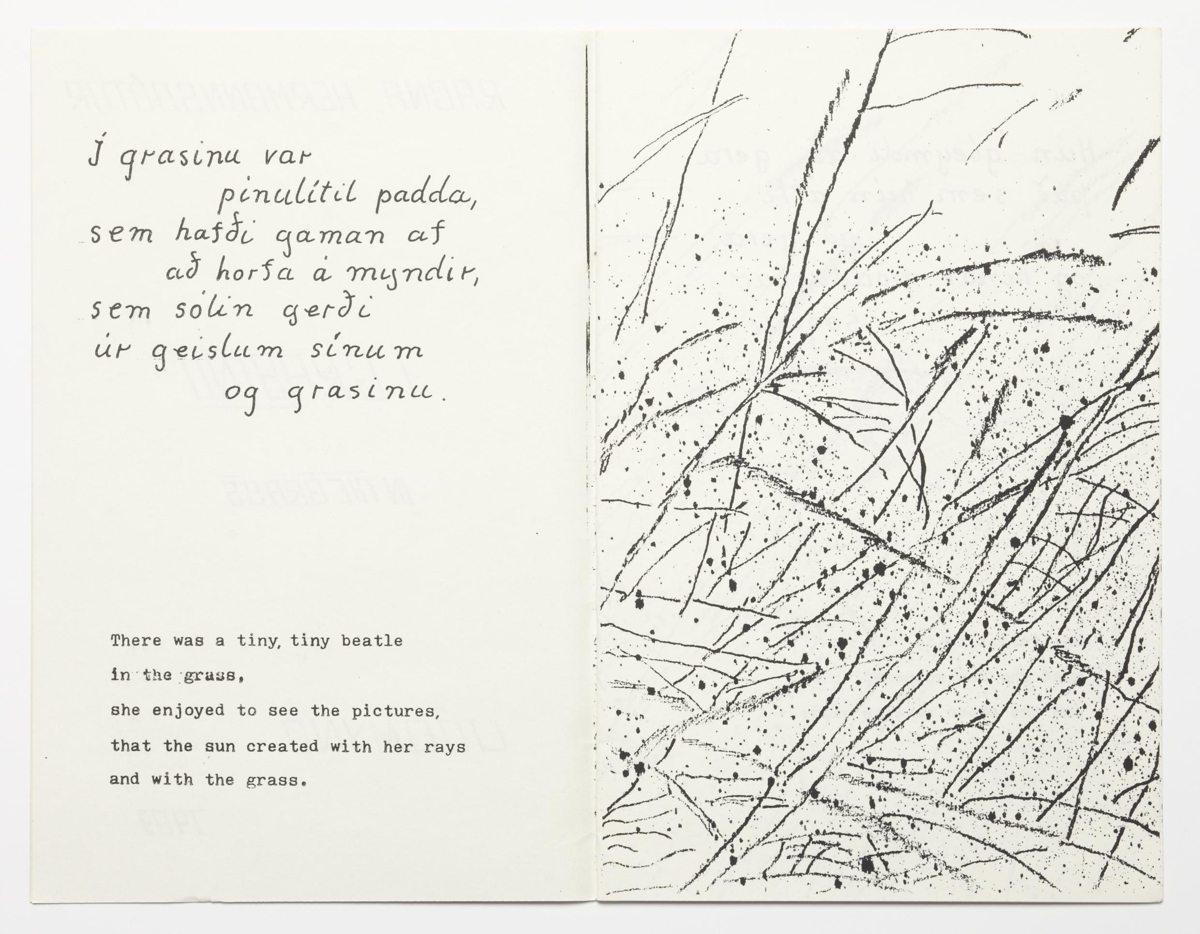 Í grasinu var
pinulítil padda,
sem hafði gaman af
að horfa á myndir,
sem sólin gerði
úr geislum sínum
og grasinu.
There was a tiny, tiny beatle
in the grass,
she enjoyed to see the pictures,
that the sun created with her rays
and with the grass.